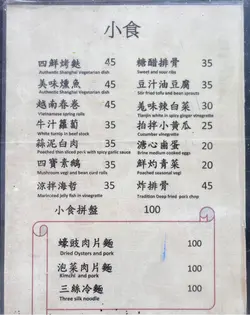 小食
四鮮烤麩 45
Authentic Shanghai Vegetarian dish
糖醋排骨 35
Sweet and sour ribs
美味燻魚 45
Authentic Shanghai Vegetarian dish
豆汁油豆腐 35
Stir fried tofu and bean sprouts
越南春卷 45
Vietnamese spring rolls
薑味辣白菜 30
Tianjin white in spicy ginger vinegrette
牛汁蘿蔔 35
White turnip in beef stock
拍拌小黃瓜 25
Cucumber vinegrette
蒜泥白肉 35
Poached thin sliced pork with spicy garlic sauce
溏心鹵蛋 20
Brine medium cooked eggs
四寶素鵝 35
Mushroom vegi and bean cord rolls
鮮灼青菜 20
Poached seasonal vegi
涼拌海哲 35
Marinated jelly fish in vinegrette
炸排骨 45
Tradition Deep fried pork chop
小食拼盤 100
蠔豉肉片麵 100
Dried Oysters and pork
泡菜肉片麵 100
Kimchi and pork
三絲冷麵 100
Three silk noodle